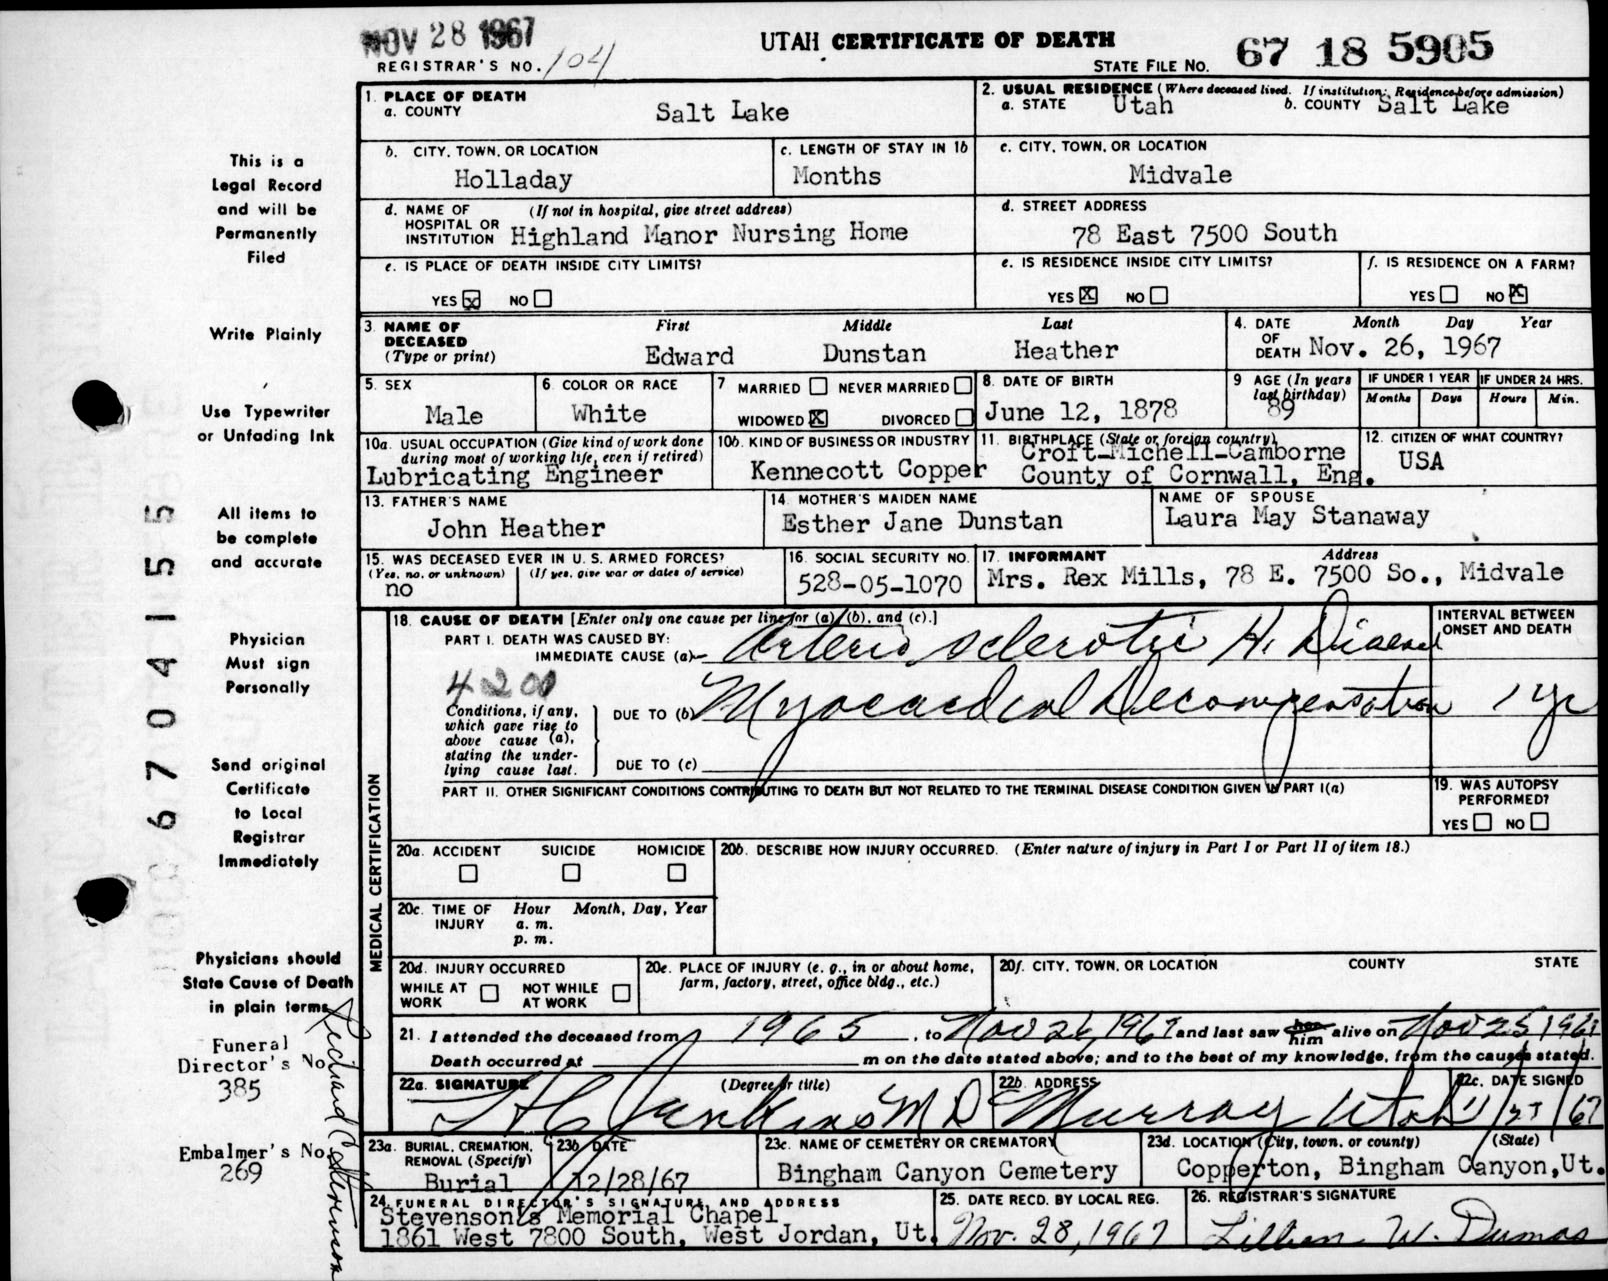 NOV 28 1967
REGISTRAR'S NO. 104
UTAH CERTIFICATE OF DEATH
STATE FILE NO. 67 18 5905
This is a
Legal Record
and will be
Permanently
Filed
Write Plainly
Use Typewriter
or Unfading Ink
All items to
be complete
and accurate
Physician
Must sign
Personally
Send original
Certificate
to Local
Registrar
Immediately
Physicians should
State Cause of Death
in plain terms
Funeral
Director's No
385
Embalmer's No.
269
67 04155
1. PLACE OF DEATH
a. COUNTY Salt Lake
2. USUAL RESIDENCE (Where deceased lived. If institution: Residence before admission)
a. STATE Utah b. COUNTY Salt Lake
b. CITY, TOWN, OR LOCATION
Holladay
c. LENGTH OF STAY IN 1b
Months
c. CITY, TOWN, OR LOCATION
Midvale
d. NAME OF (If not in hospital, give street address)
HOSPITAL OR
INSTITUTION Highland Manor Nursing Home
d. STREET ADDRESS
78 East 7500 South
e. IS PLACE OF DEATH INSIDE CITY LIMITS?
YES X NO
e. IS RESIDENCE INSIDE CITY LIMITS?
YES X NO
f. IS RESIDENCE ON A FARM?
YES NO X
3. NAME OF First Middle Last
DECEASED
(Type or print) Edward Dunstan Heather
4. DATE Month Day Year
OF
DEATH Nov. 26, 1967
5. SEX
Male
6. COLOR OR RACE
White
7 MARRIED NEVER MARRIED
WIDOWED X DIVORCED
8. DATE OF BIRTH
June 12, 1878
9 AGE (In years
last birthday)
89
IF UNDER 1 YEAR
Months Days
IF UNDER 24 HRS.
Hours Min.
10a. USUAL OCCUPATION (Give kind of work done
during most of working life, even if retired)
Lubricating Engineer
10b. KIND OF BUSINESS OR INDUSTRY
Kennecott Copper
11. BIRTHPLACE (State or foreign country)
Croft-Michell-Camborne
County of Cornwall, Eng.
12. CITIZEN OF WHAT COUNTRY?
USA
13. FATHER'S NAME
John Heather
14. MOTHER'S MAIDEN NAME
Esther Jane Dunstan
NAME OF SPOUSE
Laura May Stanaway
15. WAS DECEASED EVER IN U. S. ARMED FORCES?
(Yes, no, or unknown) (If yes, give war or dates of service)
no
16. SOCIAL SECURITY NO.
528-05-1070
17. INFORMANT Address
Mrs. Rex Mills, 78 E. 7500 So., Midvale
MEDICAL CERTIFICATION
18. CAUSE OF DEATH [Enter only one cause per line for (a), (b), and (c).]
PART I. DEATH WAS CAUSED BY:
IMMEDIATE CAUSE (a) Arterio sclerotic H. Disease
INTERVAL BETWEEN
ONSET AND DEATH
4200
Conditions, if any,
which gave rise to
above cause (a),
stating the under-
lying cause last.
DUE TO (b) Myocardial Decompensation 1 yr
DUE TO (c)
PART II. OTHER SIGNIFICANT CONDITIONS CONTRIBUTING TO DEATH BUT NOT RELATED TO THE TERMINAL DISEASE CONDITION GIVEN IN PART I(a)
19. WAS AUTOPSY
PERFORMED?
YES NO
20a. ACCIDENT SUICIDE HOMICIDE
20b. DESCRIBE HOW INJURY OCCURRED. (Enter nature of injury in Part I or Part II of item 18.)
20c. TIME OF Hour Month, Day, Year
INJURY a. m.
p. m.
20d. INJURY OCCURRED
WHILE AT NOT WHILE
WORK AT WORK
20e. PLACE OF INJURY (e. g., in or about home,
farm, factory, street, office bldg., etc.)
20f. CITY, TOWN, OR LOCATION COUNTY STATE
21. I attended the deceased from 1965, to Nov 26, 1967 and last saw her him alive on Nov 25 1967
Death occurred at m on the date stated above; and to the best of my knowledge, from the causes stated.
22a. SIGNATURE (Degree or title)
Jenkins M D
22b. ADDRESS
Murray Utah
22c. DATE SIGNED
11/27/67
23a. BURIAL, CREMATION,
REMOVAL (Specify)
Burial
23b. DATE
12/28/67
23c. NAME OF CEMETERY OR CREMATORY
Bingham Canyon Cemetery
23d. LOCATION (City, town, or county) (State)
Copperton, Bingham Canyon, Ut.
24. FUNERAL DIRECTOR'S SIGNATURE AND ADDRESS
Stevenson's Memorial Chapel
1861 West 7800 South, West Jordan, Ut.
25. DATE RECD. BY LOCAL REG.
Nov. 28, 1967
26. REGISTRAR'S SIGNATURE
Lillian W. Dumas